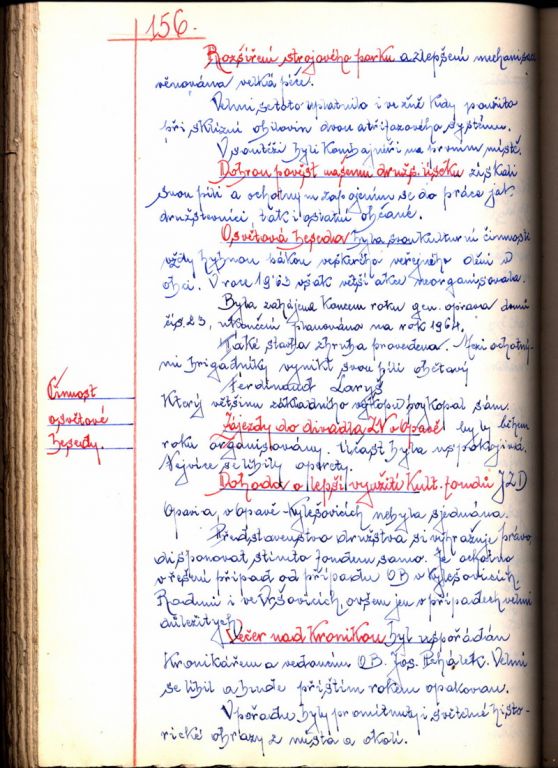 156.
Rozšíření strojového parku a zlepšení mechanisaci
věnována velká péče.
Velmi se toto uplatnilo i ve žně kdy použito
při sklizni obilovin dvou a třífázového systému.
V soutěži byli kombajnéři na prvním místě.
Dobrou pověst našemu družs. úseku získali
svou pílí a ochotným zapojením se do práce jak
družstevníci tak i ostatní občané.
Osvětová beseda byla svou kulturní činností
vždy hybnou pákou veškerého veřejného dění v
obci. V roce 1963 však větší akce neorganisovala.
Byla zahájena koncem roku gen. oprava domu
čís. 23, ukončení plánováno na rok 1964.
Také stavba zhruba provedena. Mezi ochotný-
mi brigádníky vynikl svou pílí obětavý
Ferdinand Laryš
Který většinu základního výkopu vykopal sám.
Zájezdy do divadla ZN v Opavě byly během
roku organisovány. Účast byla uspokojivá.
Nejvíce se líbily operety.
Činnost
osvětové
besedy.
Dohoda o lepší využití Kult. fondů JZD
Opavia, v Opavě-Kylešovicích nebyla sjednána.
Představenstvo družstva si vyhražuje právo
disponovat s tímto fondem samo. Je ochotno
v řešení případ od případu OB v Kylešovicích
Raduni i ve Vršovicích, ovšem jen v případech velmi
důležitých.
Večer nad Kronikou byl uspořádán
Kronikářem a vedoucím OB. Jos. Pchálek. Velmi
se líbil a bude příštím rokem opakován.
V pořadu byly promítnuty i světelné histo-
rické obrazy z místa a okolí.